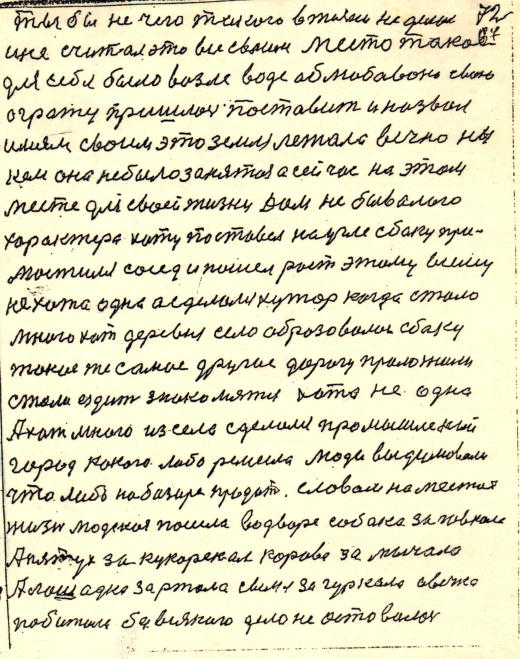 ты бы не чего такого в жизни не делал 72
и не считал это все своим место такое 67
для себя было возле воде облюбавоно свою
ограту пришлох поставит и назвал
имям своим это земля лежала вечно не
кем она небыло занятоя а сей час на этом
месте для своей жизни Дом не бывалого
характера хату поставел на угле сбаку при-
мостился сосед и пошел рост этому всему
не хота одна а сделолся хутор когда стало
много хат деревня село образовалось сбаку
такое же самое другие дорогу праложили
стали ездит знакомятся хата не одна
А хат много из села сделался промышленый
город какого либо ремесла люди выдумовали
что либо на базаре продат. словом на местах
жизн людская пошла во дворе собака загавкала
А пятух за кукорекал корова за мычала
А лошадка заржала свиня за чуркала овечка
побитала без всякого дело не остовалос